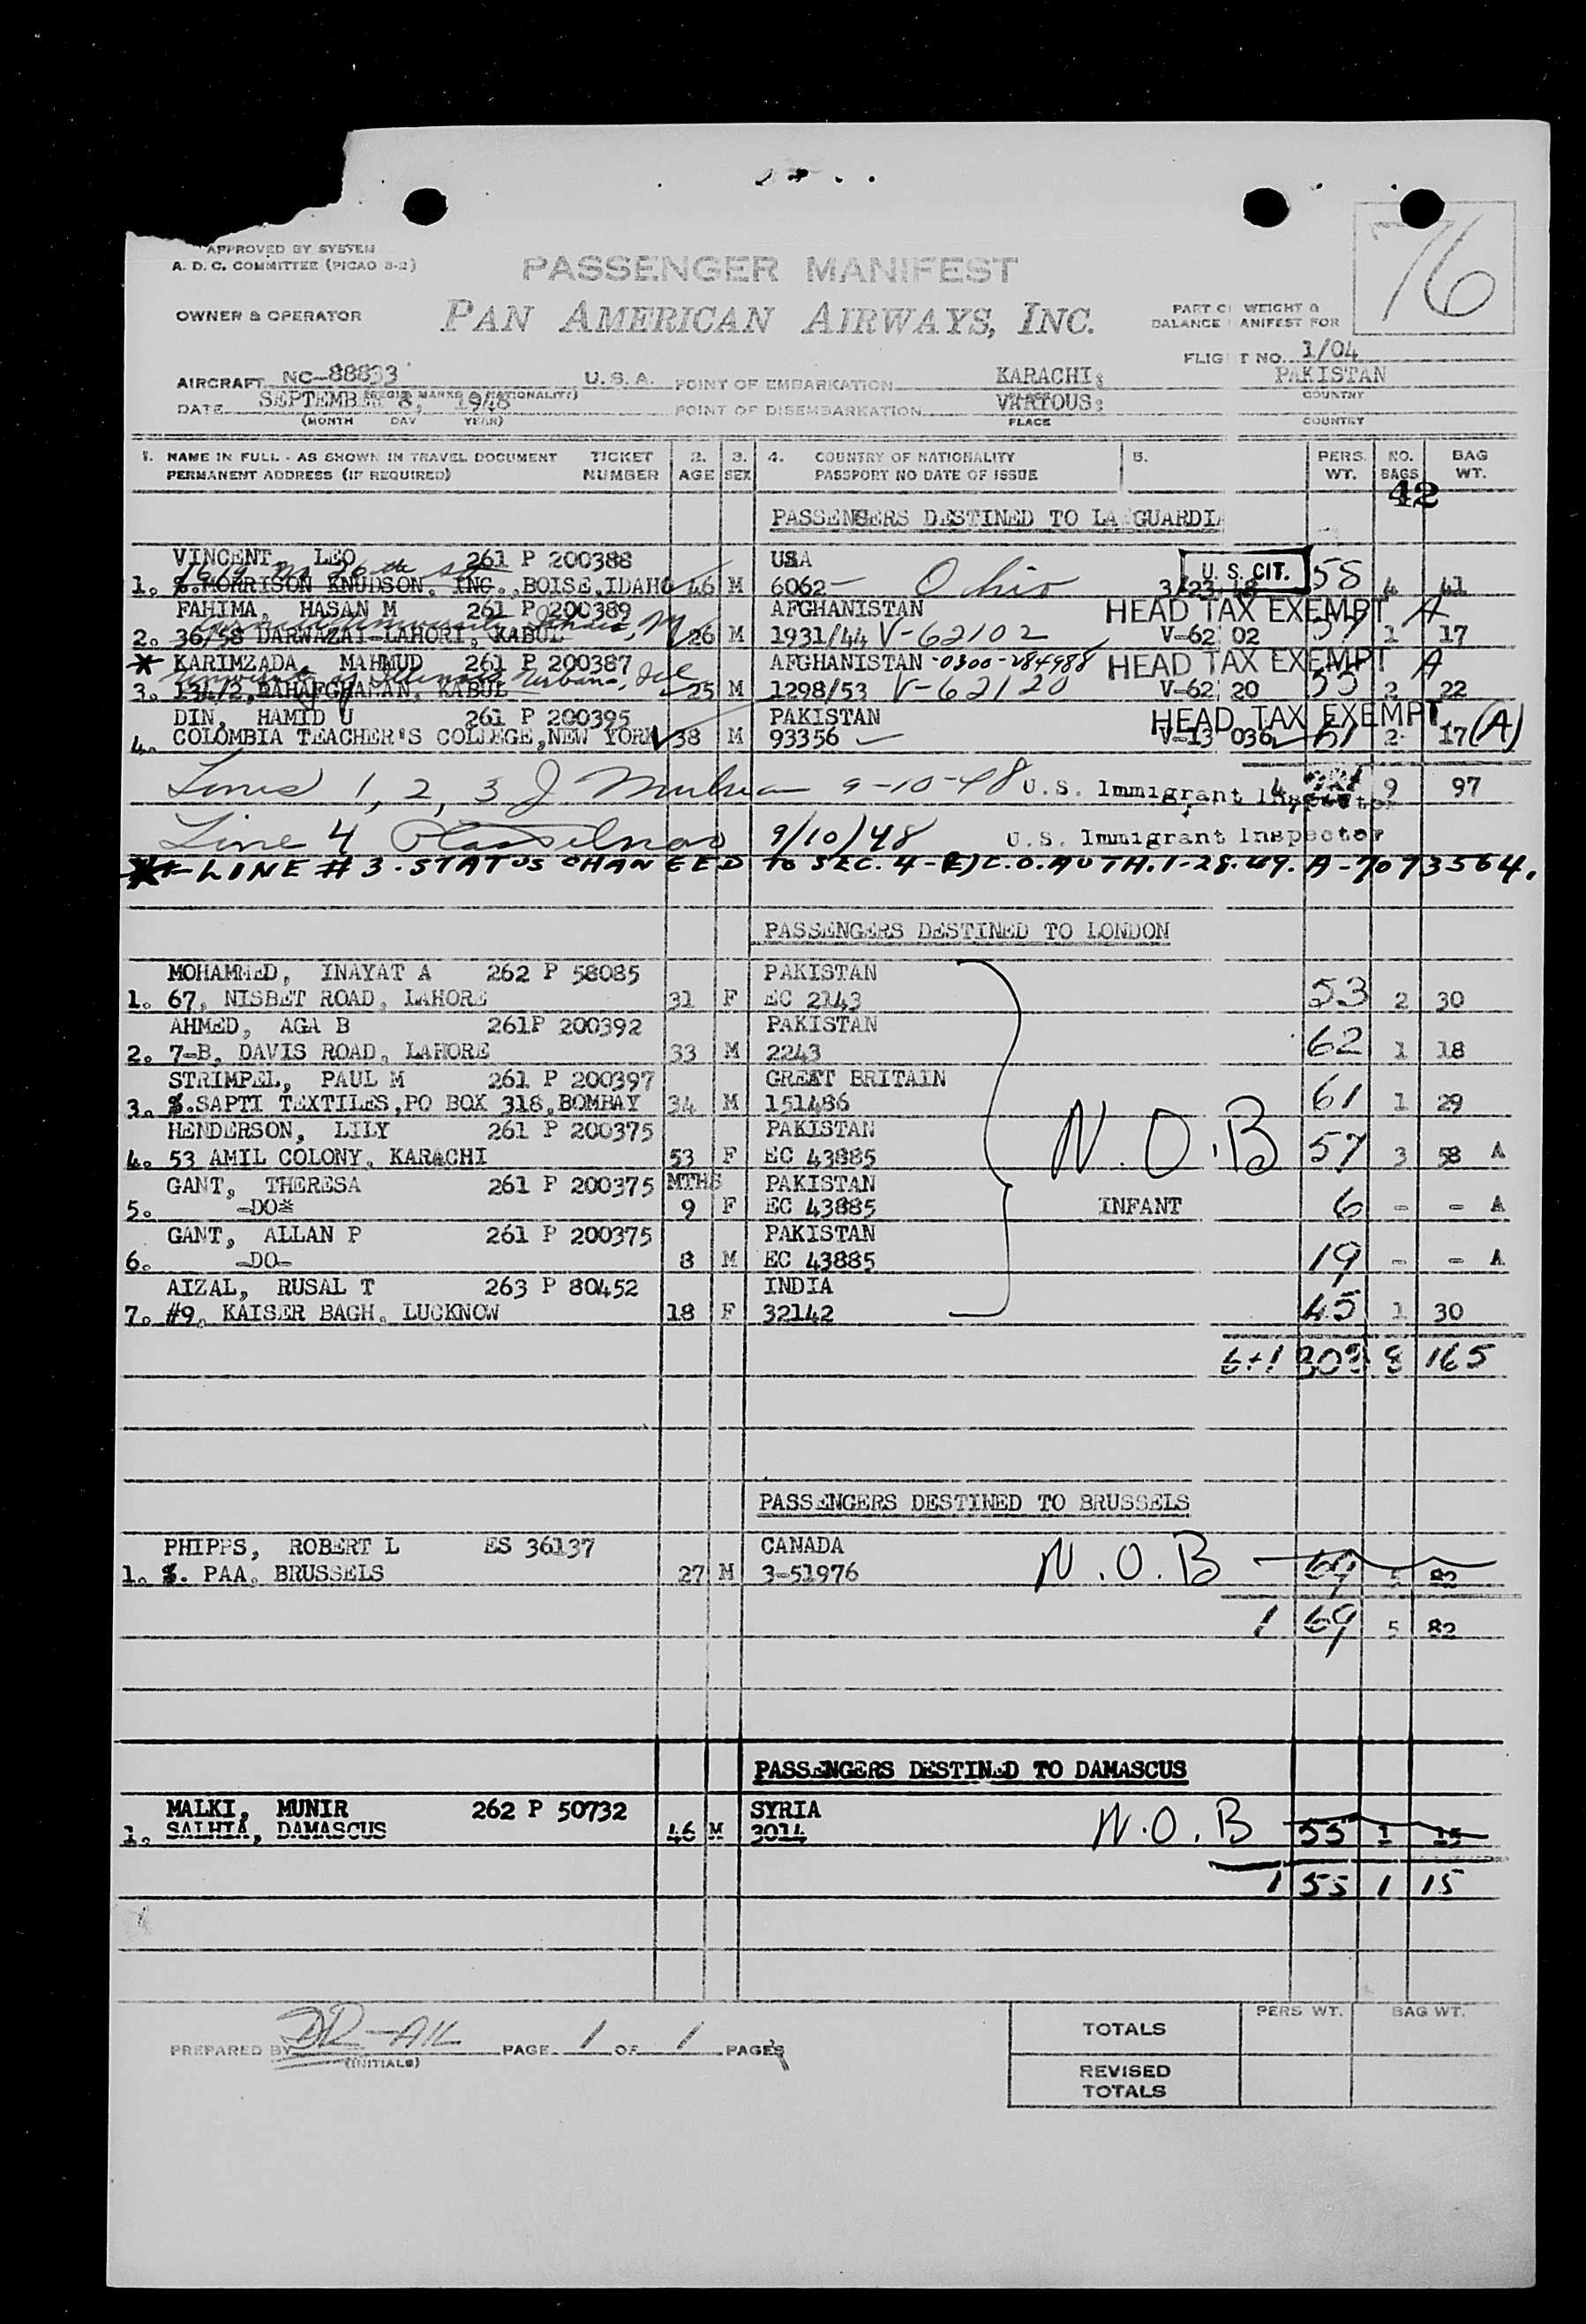 76
APPROVED BY SYSTEM
A. D. C. COMMITTEE (PICAO 3-2)
PASSENGER MANIFEST
OWNER & OPERATOR
PAN AMERICAN AIRWAYS, INC.
PART O WEIGHT &
BALANCE ANIFEST FOR
FLIG T NO. 1/04
AIRCRAFT NC-88833 U.S.A. POINT OF EMBARKATION KARACHI; PAKISTAN
(REGIS. MARKS & NATIONALITY) COUNTRY
DATE SEPTEMBER 8, 1948 POINT OF DISEMBARKATION VARIOUS;
(MONTH DAY YEAR) PLACE COUNTRY
1. NAME IN FULL - AS SHOWN IN TRAVEL DOCUMENT TICKET 2. 3. 4. COUNTRY OF NATIONALITY 5. PERS. NO. BAG
PERMANENT ADDRESS (IF REQUIRED) NUMBER AGE SEX PASSPORT NO DATE OF ISSUE WT. BAGS WT.
42
PASSENGERS DESTINED TO LA GUARDIA
VINCENT, LEO 261 P 200388 USA U. S. CIT. 58
1. %.MORRISON KNUDSON, INC.,BOISE,IDAHO 46 M 6062- Ohio 3/23/48 4 41
FAHIMA, HASAN M 261 P 200389 AFGHANISTAN HEAD TAX EXEMPT A
2. 36/58 DARWAZAI-LAHORI, KABUL 26 M 1931/44 V-62102 V-62 02 1 17
* KARIMZADA, MAHMUD 261 P 200387 AFGHANISTAN -0300-284988 HEAD TAX EXEMPT A
University of Illinois Urbana, Ill
3. 134/2, KABUL 25 M 1298/53 V-62120 V-62 20 2 22
DIN, HAMID U 261 P 200395 PAKISTAN HEAD TAX EXEMPT. (A)
4. COLOMBIA TEACHER'S COLLEGE,NEW YORK 38 M 93356 V-13 036 2 17
Lines 1, 2, 3 J 9-10-48 U.S. Immigrant Inspector 4 9 97
Line 4 9/10/48 U.S. Immigrant Inspector
*- LINE # 3. STATUS CHANGED TO SEC. 4-(E) C.O. AUTH. 1-28-49. A-7073564.
PASSENGERS DESTINED TO LONDON
MOHAMMED, INAYAT A 262 P 58085 PAKISTAN
1. 67, NISBET ROAD, LAHORE 31 F EC 2143 53 2 30
AHMED, AGA B 261P 200392 PAKISTAN
2. 7-B, DAVIS ROAD, LAHORE 33 M 2243 62 1 18
STRIMPEL, PAUL M 261 P 200397 GREAT BRITAIN
3. %.SAPTI TEXTILES,PO BOX 318,BOMBAY 34 M 151486 61 1 29
HENDERSON, LILY 261 P 200375 PAKISTAN N.O.B
4. 53 AMIL COLONY, KARACHI 53 F EC 43885 57 3 58 A
GANT, THERESA 261 P 200375 MTHS PAKISTAN
5. -DO- 9 F EC 43885 INFANT 6 - - A
GANT, ALLAN P 261 P 200375 PAKISTAN
6. -DO- 8 M EC 43885 19 - - A
AIZAL, RUSAL T 263 P 80452 INDIA
7. #9, KAISER BAGH, LUCKNOW 18 F 32142 45 1 30
6+1 303 8 165
PASSENGERS DESTINED TO BRUSSELS
PHIPPS, ROBERT L ES 36137 CANADA
1. %. PAA, BRUSSELS 27 M 3-51976 N.O.B 69 5 82
1 69 5 82
PASSENGERS DESTINED TO DAMASCUS
MALKI, MUNIR 262 P 50732 SYRIA
1. SALHIA, DAMASCUS 46 M 3014 N.O.B 55 1 15
1 55 1 15
PREPARED BY (INITIALS) PAGE 1 OF 1 PAGES
PERS WT. BAG WT.
TOTALS
REVISED
TOTALS